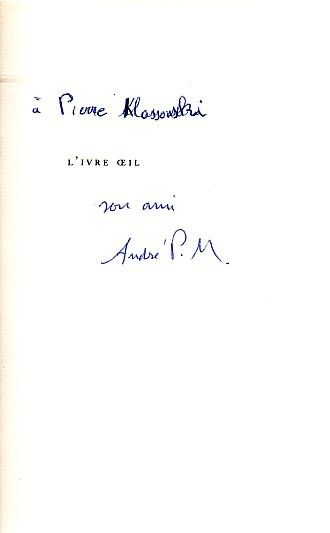 à Pierre Klossowski
L'IVRE ŒIL
son ami
André P. M.